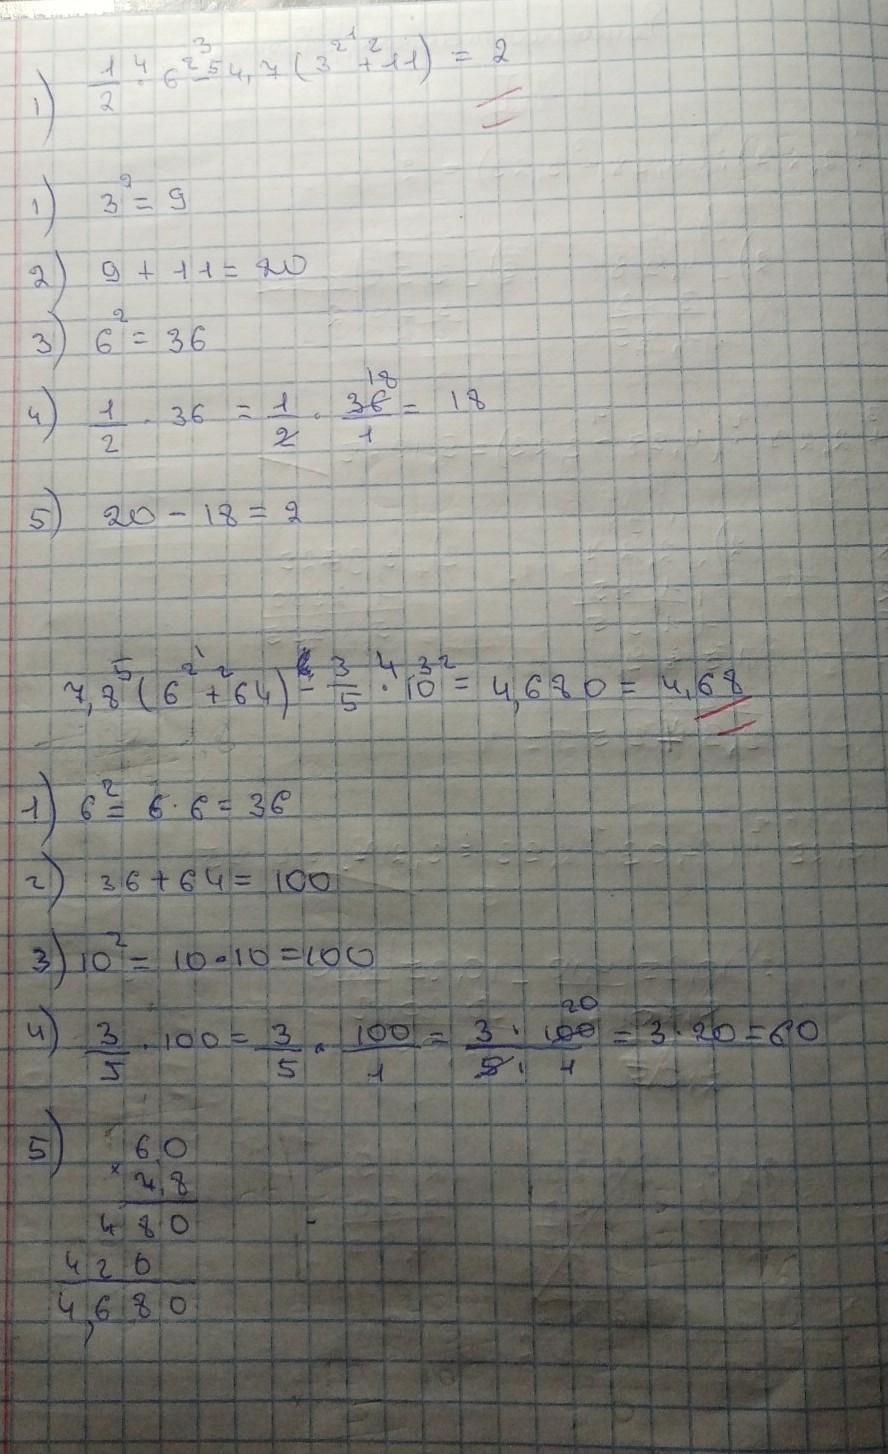 1) 1/2 ⁴· 6² ³ -⁵ 4,7 (3² ¹ +² 11) = 2
1) 3² = 9
2) 9 + 11 = 20
3) 6² = 36
4) 1/2 · 36 = 1/2 · 36/1 18 = 18
5) 20 - 18 = 2
7,8 ⁵ (6² ¹ +² 64) - 3/5 ⁴· 10² ³ = 4,680 = 4,68
1) 6² = 6 · 6 = 36
2) 36 + 64 = 100
3) 10² = 10 · 10 = 100
4) 3/5 · 100 = 3/5 · 100/1 = 3 · 100/5 · 1 20 = 3 · 20 = 60
5) 60
× 7,8
480
420
4,680